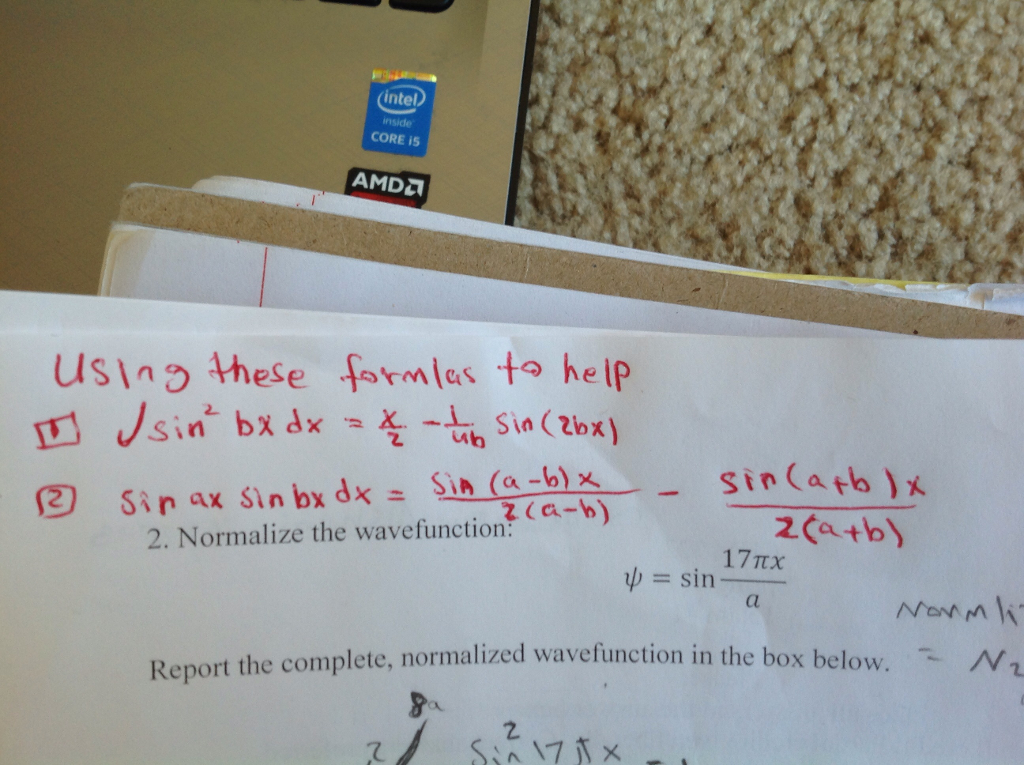 intel
inside
CORE i5
AMD
Using these formlas to help
1 ∫sin² bx dx = x/2 - 1/4b sin(2bx)
2 sin ax sin bx dx = sin(a-b)x/2(a-b) - sin(a+b)x/2(a+b)
2. Normalize the wavefunction:
ψ = sin 17πx/a
Report the complete, normalized wavefunction in the box below.
= N2
8a
2 ∫ sin² 17πx